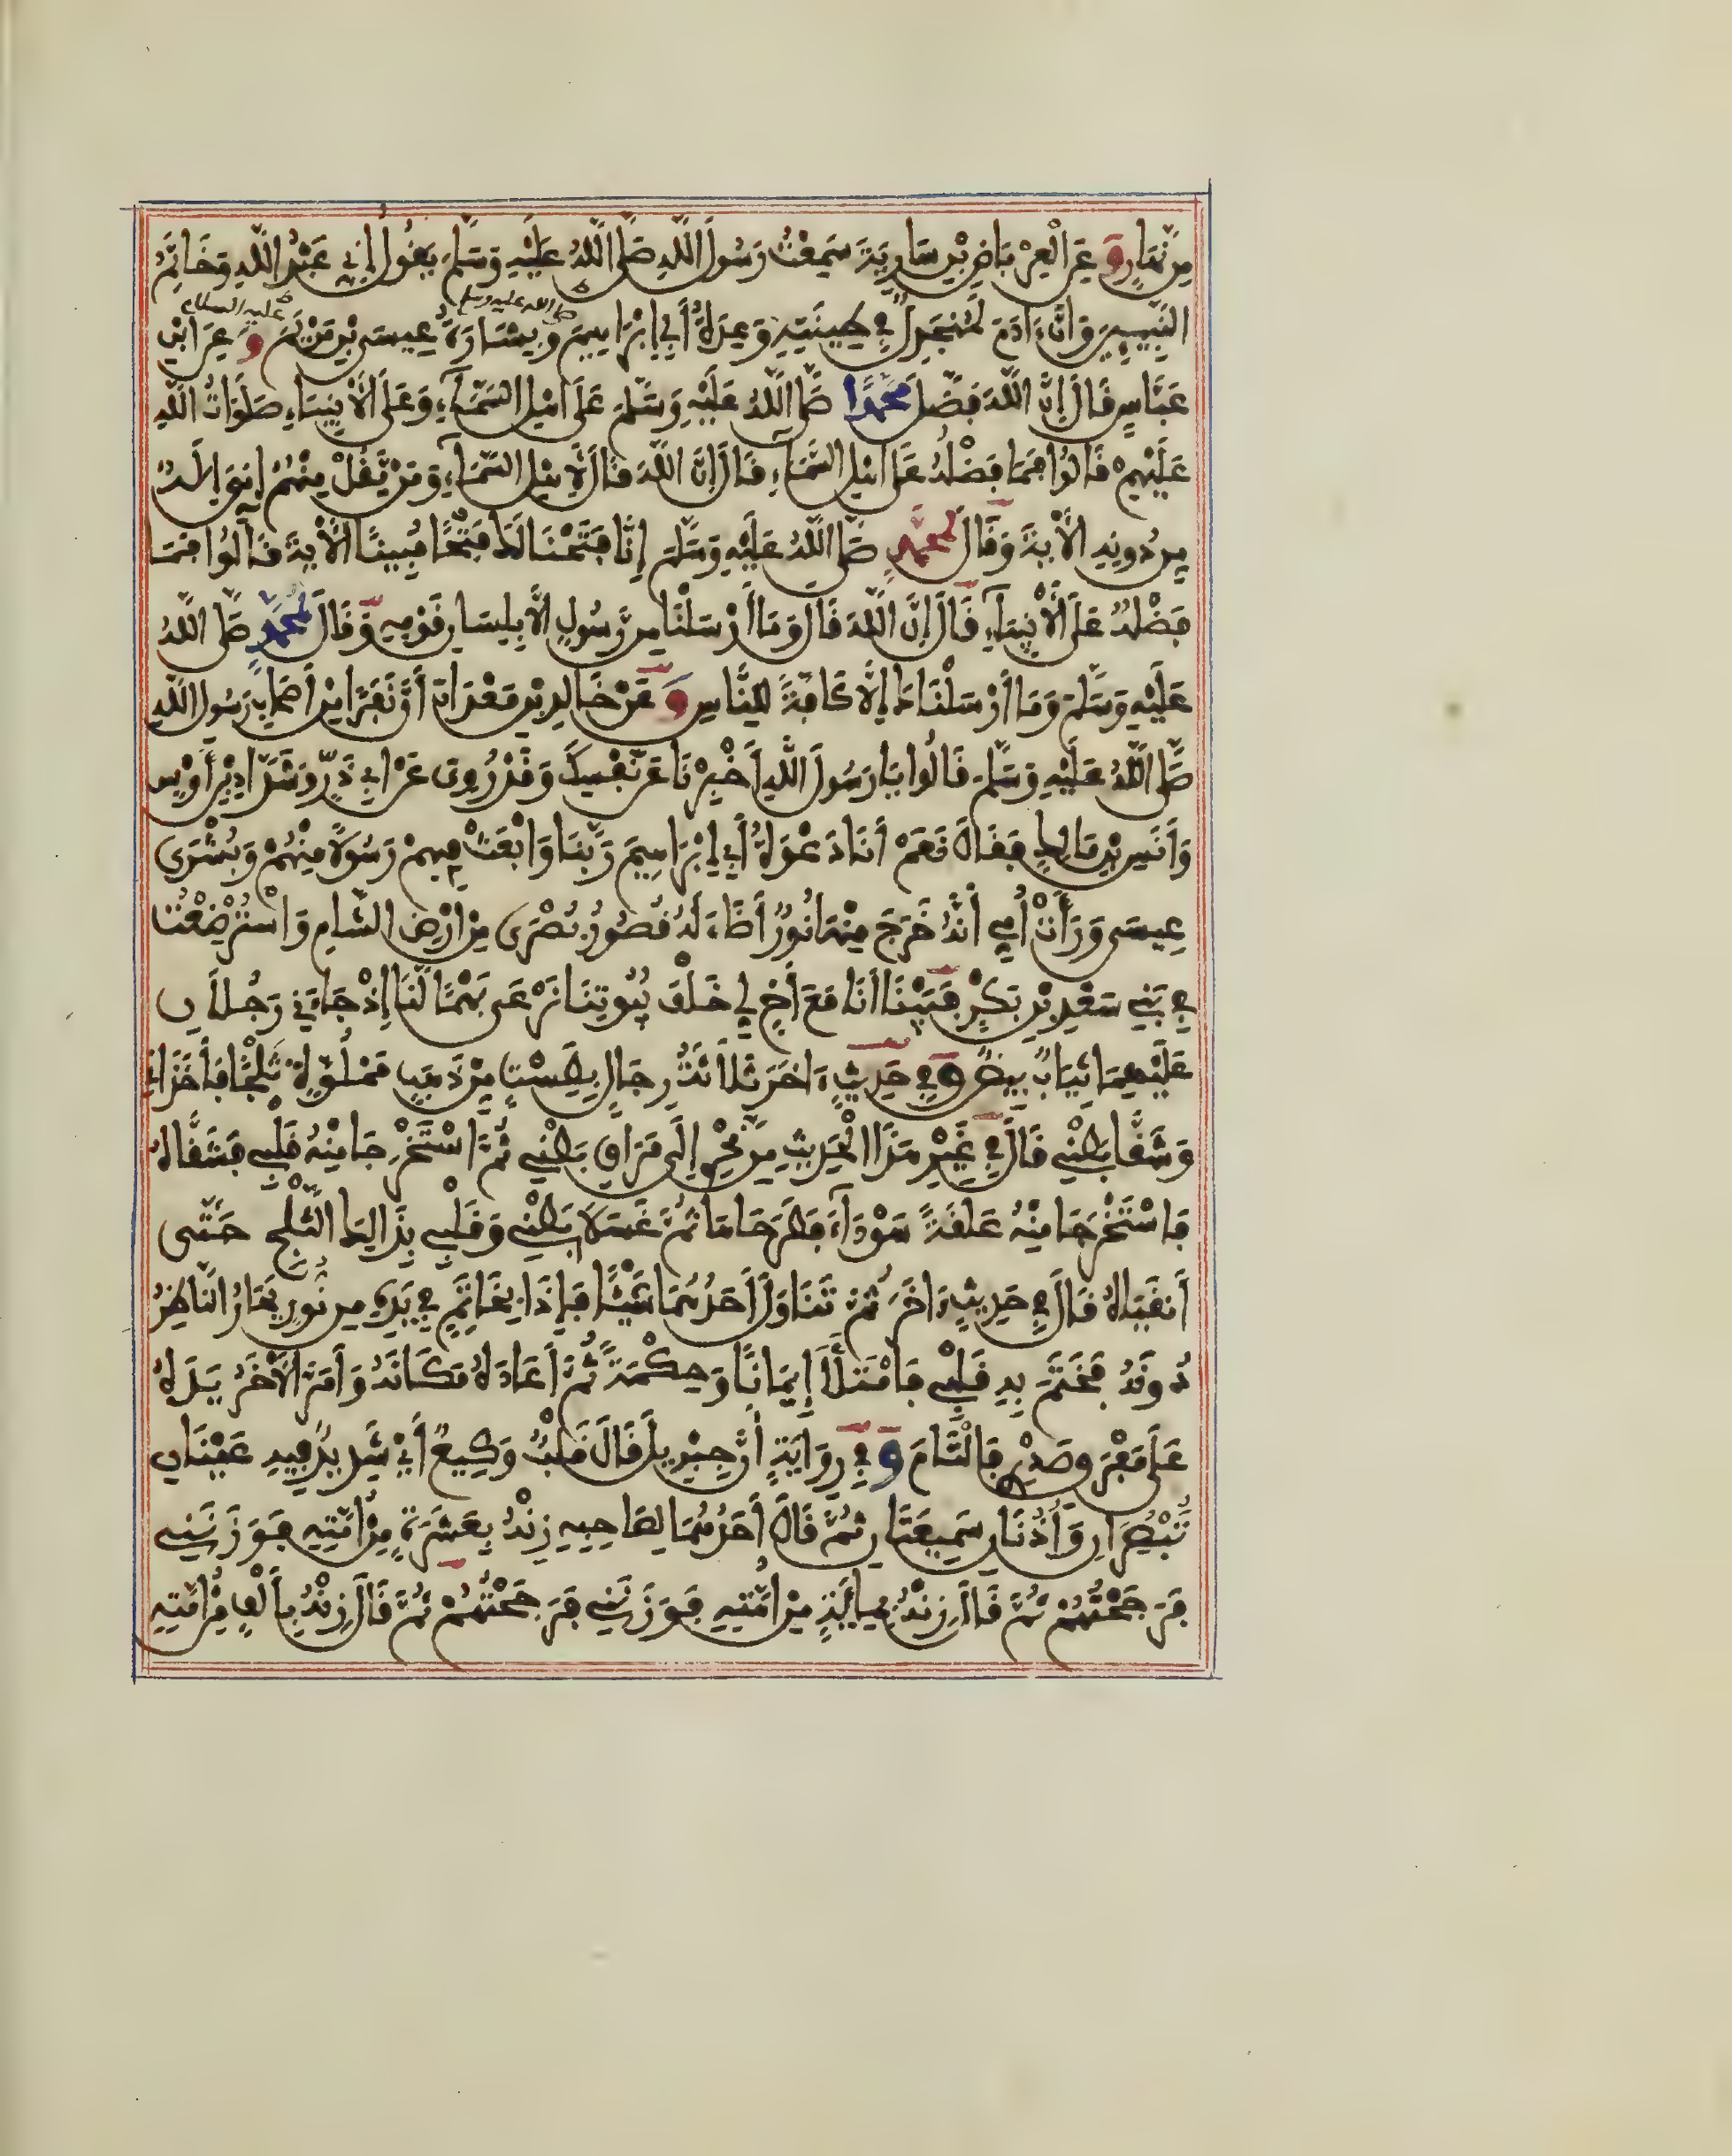 مِن نَّهَارٍ وَعَنِ الْعِرْبَاضِ بْنِ سَارِيَةَ سَمِعْتُ رَسُولَ اللَّهِ صَلَّى اللَّهُ عَلَيْهِ وَسَلَّمَ يَقُولُ إِنِّي عَبْدُ اللَّهِ وَخَاتَمُ
النَّبِيِّينَ وَإِنَّ ءَادَمَ لَمُنْجَدِلٌ فِي طِينَتِهِ وَعِدَةُ أَبِي إِبْرَاهِيمَ صلى الله عليه وسلم وَبِشَارَةُ عِيسَى بْنِ مَرْيَمَ عليه السلام وَعَنِ ابْنِ
عَبَّاسٍ قَالَ إِنَّ اللَّهَ فَضَّلَ مُحَمَّدًا صَلَّى اللَّهُ عَلَيْهِ وَسَلَّمَ عَلَى أَهْلِ السَّمَاءِ وَعَلَى الْأَنْبِيَاءِ صَلَوَاتُ اللَّهِ
عَلَيْهِمْ قَالُوا فَمَا فَضْلُهُ عَلَى أَهْلِ السَّمَاءِ قَالَ إِنَّ اللَّهَ قَالَ لِأَهْلِ السَّمَاءِ وَمَنْ يَّقُلْ مِنْهُمُ إِنِّيَ إِلَهٌ
مِّن دُونِهِ الْآيَةَ وَقَالَ لِمُحَمَّدٍ صَلَّى اللَّهُ عَلَيْهِ وَسَلَّمَ إِنَّا فَتَحْنَا لَكَ فَتْحًا مُّبِينًا الْآيَةَ قَالُوا فَمَا
فَضْلُهُ عَلَى الْأَنْبِيَاءِ قَالَ إِنَّ اللَّهَ قَالَ وَمَا أَرْسَلْنَا مِن رَّسُولٍ إِلَّا بِلِسَانِ قَوْمِهِ وَقَالَ لِمُحَمَّدٍ صَلَّى اللَّهُ
عَلَيْهِ وَسَلَّمَ وَمَا أَرْسَلْنَاكَ إِلَّا كَافَّةً لِّلنَّاسِ وَعَنْ خَالِدِ بْنِ مَعْدَانَ أَنَّ نَفَرًا مِّنْ أَصْحَابِ رَسُولِ اللَّهِ
صَلَّى اللَّهُ عَلَيْهِ وَسَلَّمَ قَالُوا يَا رَسُولَ اللَّهِ أَخْبِرْنَا عَن نَّفْسِكَ وَقَدْ رُوِيَ عَنْ أَبِي ذَرٍّ وَشَدَّادِ بْنِ أَوْسٍ
وَأَنَسِ بْنِ مَالِكٍ فَقَالَ نَعَمْ أَنَا دَعْوَةُ أَبِي إِبْرَاهِيمَ رَبَّنَا وَابْعَثْ فِيهِمْ رَسُولًا مِّنْهُمْ وَبُشْرَى
عِيسَى وَرَأَتْ أُمِّي أَنَّهُ خَرَجَ مِنْهَا نُورٌ أَضَاءَ لَهُ قُصُورُ بُصْرَى مِنْ أَرْضِ الشَّامِ وَاسْتُرْضِعْتُ
فِي بَنِي سَعْدِ بْنِ بَكْرٍ فَبَيْنَا أَنَا مَعَ أَخٍ لِي خَلْفَ بُيُوتِنَا نَرْعَى بَهْمًا لَّنَا إِذْ جَاءَنِي رَجُلَانِ
عَلَيْهِمَا ثِيَابٌ بِيضٌ وَفِي حَدِيثٍ ءَاخَرَ ثَلَاثَةُ رِجَالٍ بِطَسْتٍ مِّنْ ذَهَبٍ مَمْلُوَّةٍ ثَلْجًا فَأَخَذَانِي
وَشَقَّا بَطْنِي قَالَ فِي غَيْرِ هَذَا الْحَدِيثِ مِن نَّحْرِي إِلَى مَرَاقِّ بَطْنِي ثُمَّ اسْتَخْرَجَا مِنْهُ قَلْبِي فَشَقَّاهُ
فَاسْتَخْرَجَا مِنْهُ عَلَقَةً سَوْدَاءَ فَطَرَحَاهَا ثُمَّ غَسَلَا بَطْنِي وَقَلْبِي بِذَالِكَ الثَّلْجِ حَتَّى
أَنْقَيَاهُ قَالَ فِي حَدِيثٍ ءَاخَرَ ثُمَّ تَنَاوَلَ أَحَدُهُمَا شَيْئًا فَإِذَا بِخَاتَمٍ فِي يَدِهِ مِن نُّورٍ يَحَارُ النَّاظِرُ
دُونَهُ فَخَتَمَ بِهِ قَلْبِي فَامْتَلَأَ إِيمَانًا وَحِكْمَةً ثُمَّ أَعَادَهُ مَكَانَهُ وَأَمَرَّ الْآخَرُ يَدَهُ
عَلَى مَفْرَقِ صَدْرِي فَالْتَأَمَ وَفِي رِوَايَةٍ أَنَّ جِبْرِيلَ قَالَ قَلْبٌ وَكِيعٌ أَيْ شَدِيدٌ فِيهِ عَيْنَانِ
تُبْصِرَانِ وَأُذُنَانِ سَمِيعَتَانِ ثُمَّ قَالَ أَحَدُهُمَا لِصَاحِبِهِ زِنْهُ بِعَشَرَةٍ مِّنْ أُمَّتِهِ فَوَزَنَنِي
فَرَجَحْتُهُمْ ثُمَّ قَالَ زِنْهُ بِمِائَةٍ مِّنْ أُمَّتِهِ فَوَزَنَنِي فَرَجَحْتُهُمْ ثُمَّ قَالَ زِنْهُ بِأَلْفٍ مِّنْ أُمَّتِهِ